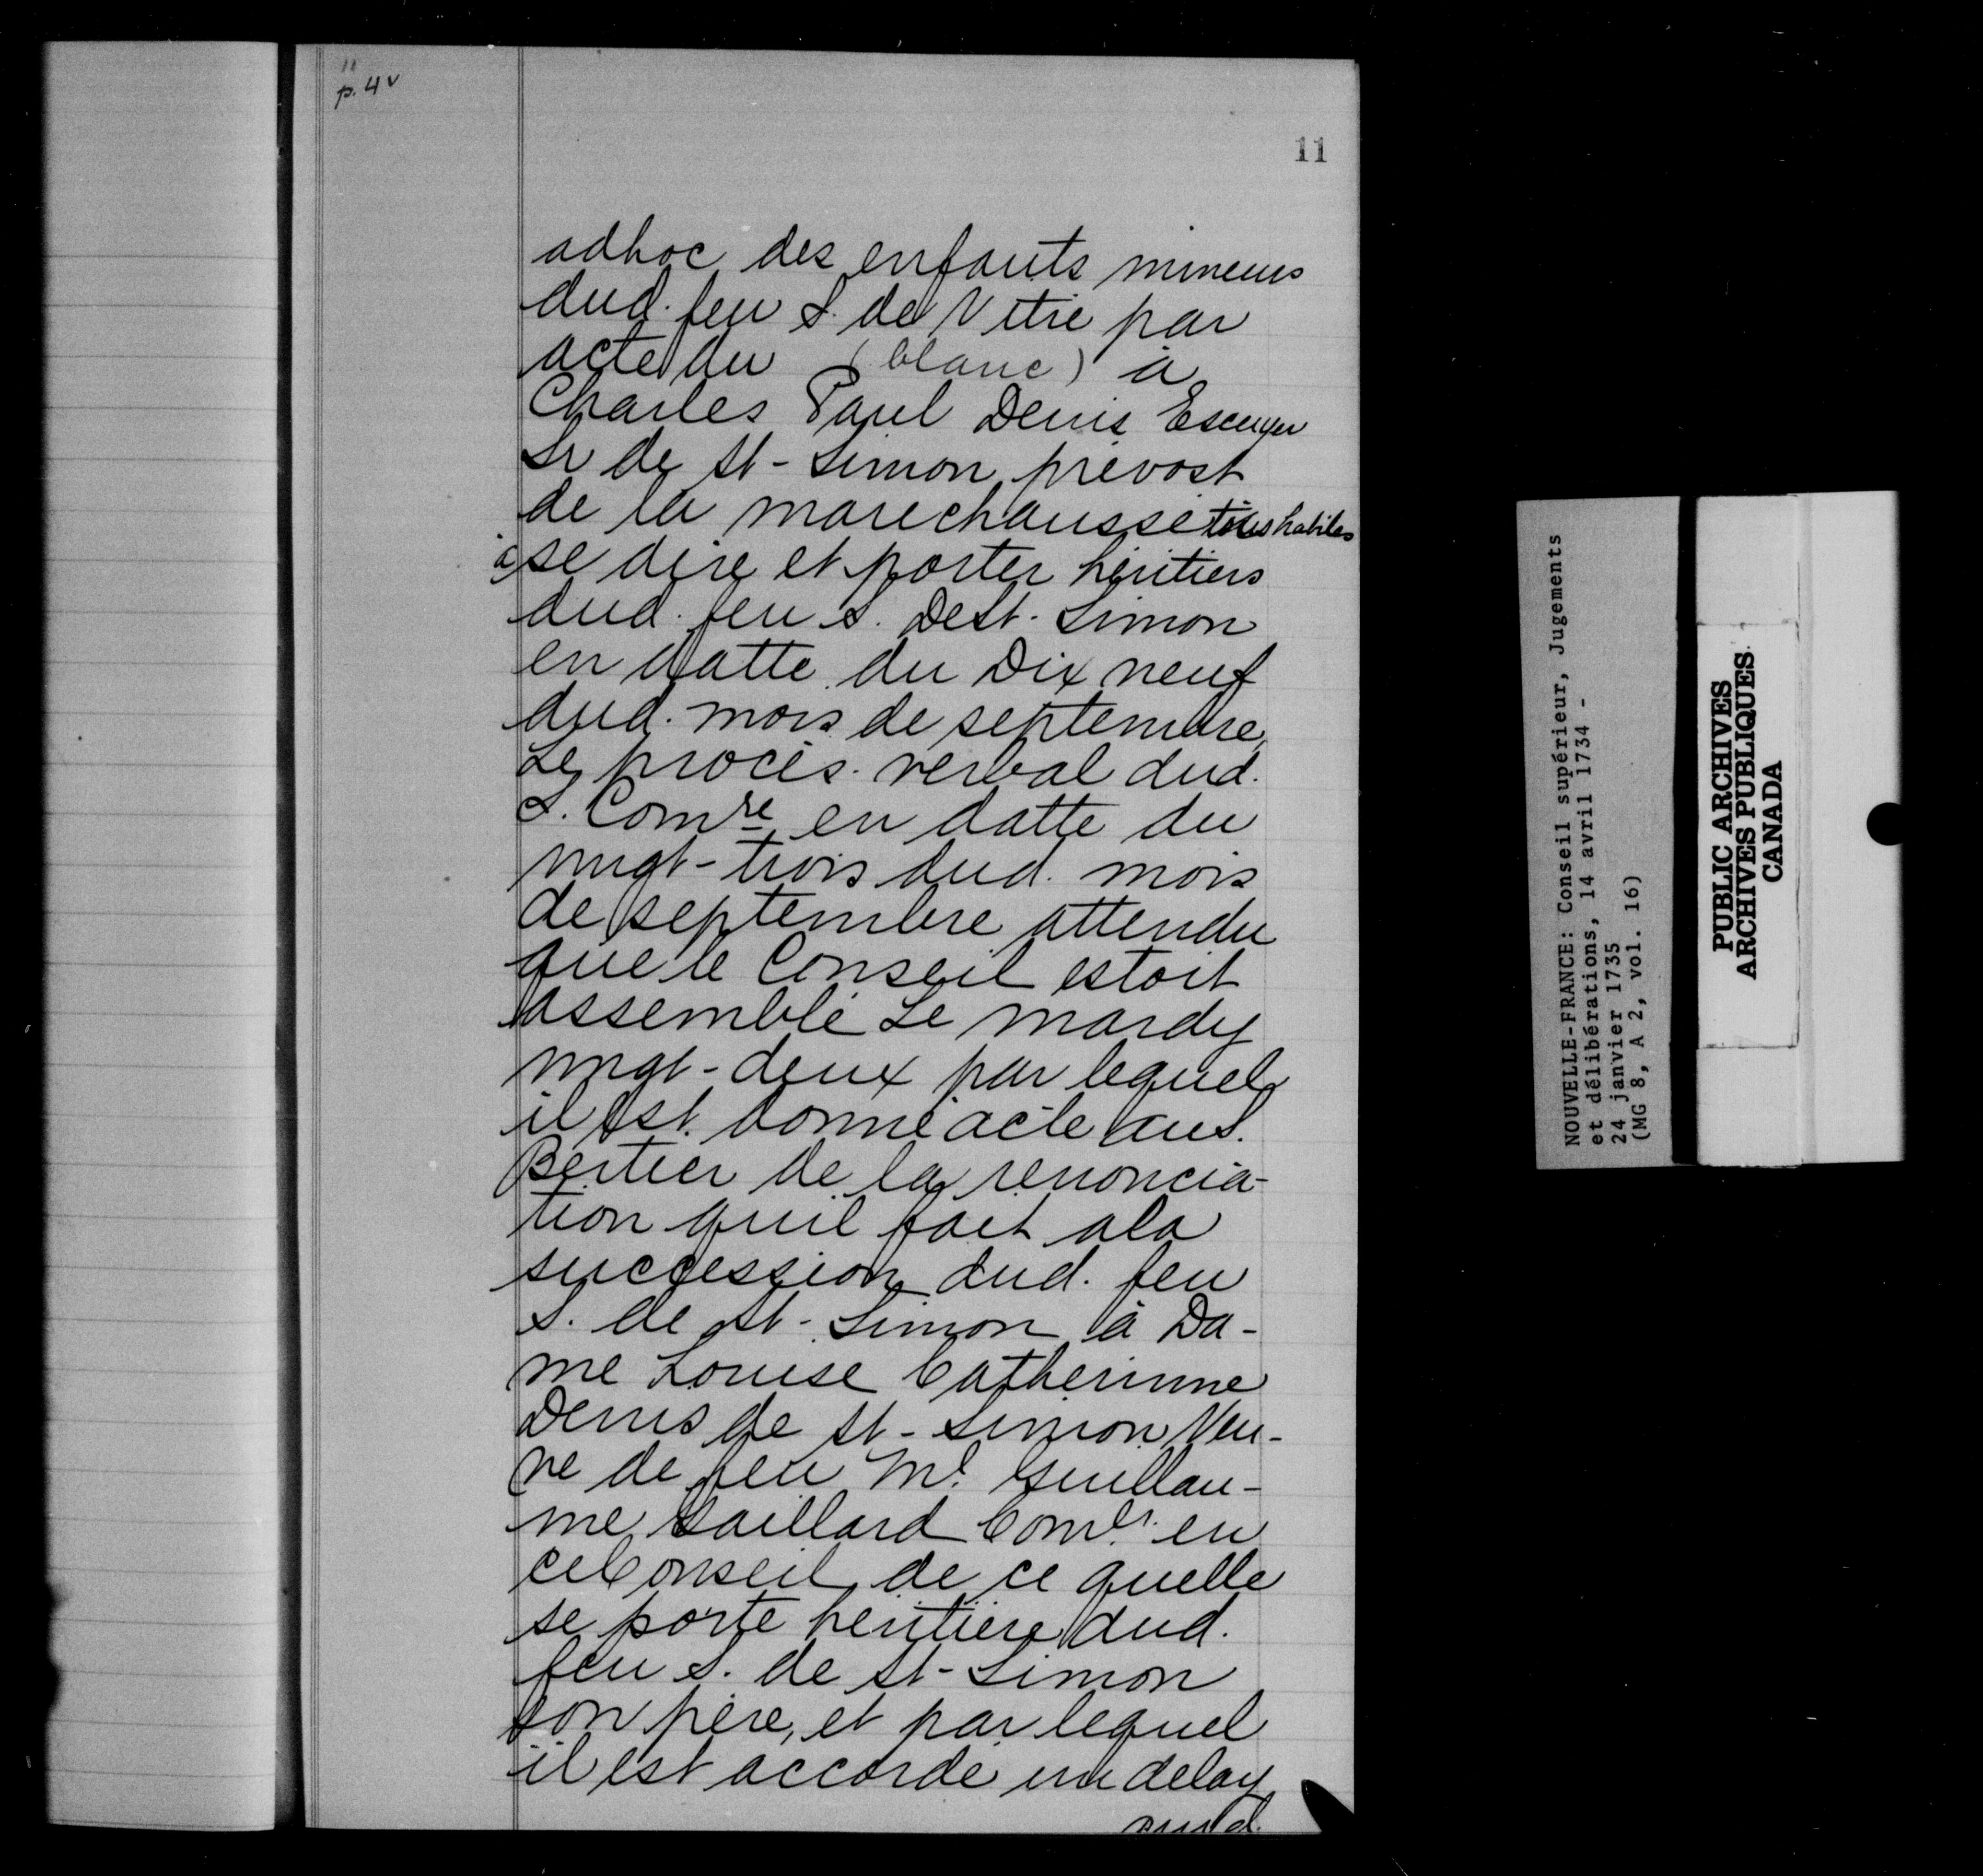 11
p. 4v
11
adhoc des enfants mineurs
dud. feu S. de Vitré par
acte du (blanc) à
Charles Paul Denis Escuyer
Sr de St-Simon prévost
de la marechaussé tous habiles
à se dire et porter héritiers
dud. feu S. De St. Simon
en datte du Dix neuf
dud. mois de septembre,
Le procès-verbal dud.
S. Comre en datte du
vingt-trois dud. mois
de septembre attendu
que le Conseil estoit
assemblé Le mardy
vingt-deux par lequel
il est donné acte au S.
Bertier de la renoncia-
tion quil fait ala
succession dud. feu
S. de St-Simon à Da-
me Louise Catherinne
Denis de St-Simon Veu-
ve de feu Me Guillau-
me Gaillard Coner en
ce Conseil de ce quelle
se porte héritiere dud.
feu S. de St-Simon
son père, et par lequel
il est accordé un delay
aud.
NOUVELLE-FRANCE: Conseil supérieur, Jugements
et délibérations, 14 avril 1734 -
24 janvier 1735
(MG 8, A 2, vol. 16)
PUBLIC ARCHIVES
ARCHIVES PUBLIQUES
CANADA